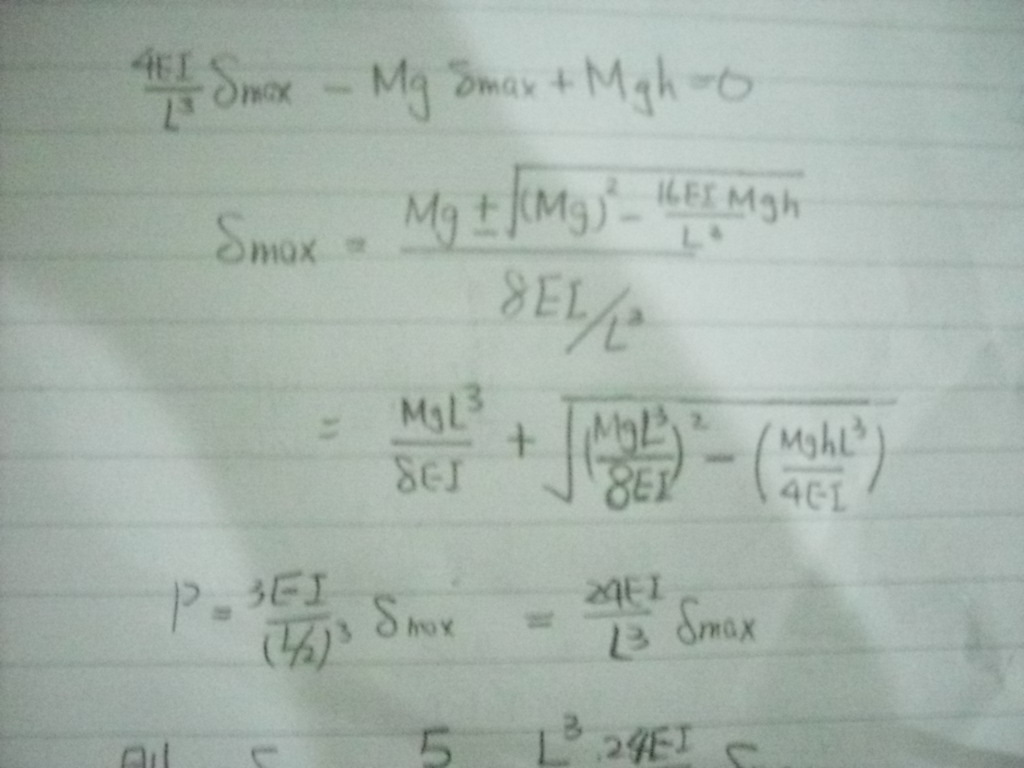 4EI/L³ δmax − Mg δmax + Mgh = 0
δmax = (Mg ± √((Mg)² − 16EI/L³ Mgh)) / (8EI/L³)
= MgL³/8EI + √((MgL³/8EI)² − (MghL³/4EI))
P = 3EI/(L/2)³ δmax = 24EI/L³ δmax
5 L³ . 24EI